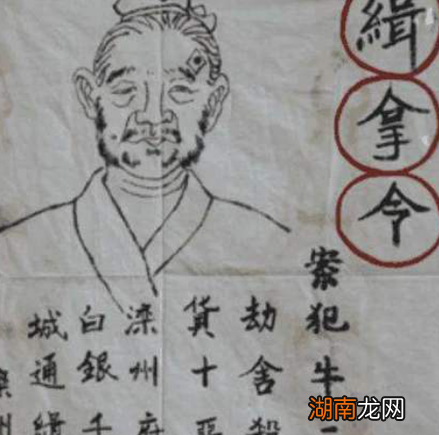 緝拿令
案犯牛二
劫舍殺
貨十惡
滦州府
白銀千
城通緝
滦州
湖南龙网